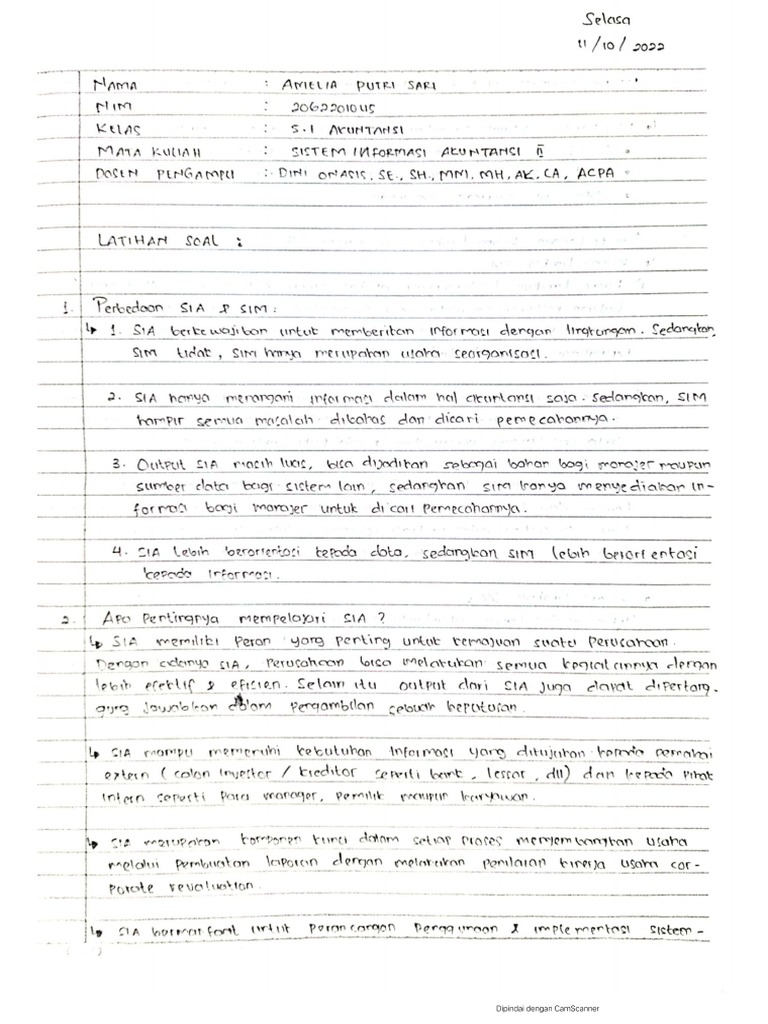 Selasa
11/10/2022
NAMA : AMELIA PUTRI SARI
NIM : 2062201045
KELAS : S.1 AKUNTANSI
MATA KULIAH : SISTEM INFORMASI AKUNTANSI II
DOSEN PENGAMPU : DINI ONASIS, SE., SH., MM, MH, AK, CA, ACPA
LATIHAN SOAL :
1. Perbedaan SIA & SIM :
↳ 1. SIA berkewajiban untuk memberikan informasi dengan lingkungan. Sedangkan,
SIM tidak, SIM hanya merupakan usaha seorganisasi.
2. SIA hanya menangani informasi dalam hal akuntansi saja. Sedangkan, SIM
hampir semua masalah dibahas dan dicari pemecahannya.
3. Output SIA masih luas, bisa dijadikan sebagai bahan bagi manajer maupun
sumber data bagi sistem lain, sedangkan sim hanya menyediakan in-
formasi bagi manajer untuk dicari pemecahannya.
4. SIA lebih berorientasi kepada data, sedangkan SIM lebih berorientasi
kepada informasi.
2. Apa Pentingnya mempelajari SIA ?
↳ SIA memiliki peran yang penting untuk kemajuan suatu perusahaan.
Dengan adanya SIA, perusahaan bisa melakukan semua kegiatannya dengan
lebih efektif & efisien. Selain itu output dari SIA juga dapat dipertang-
gung jawabkan dalam pengambilan sebuah keputusan.
↳ SIA mampu memenuhi kebutuhan informasi yang ditujukan kepada pemakai
extern (calon investor / kreditor seperti bank, lessor, dll) dan kepada pihak
intern seperti para manager, pemilik maupun karyawan.
↳ SIA merupakan komponen kunci dalam setiap proses mengembangkan usaha
melalui pembuatan laporan dengan melakukan penilaian kinerja usaha cor-
porate revaluation.
↳ SIA bermanfaat untuk perancangan penggunaan & implementasi sistem-
Dipindai dengan CamScanner